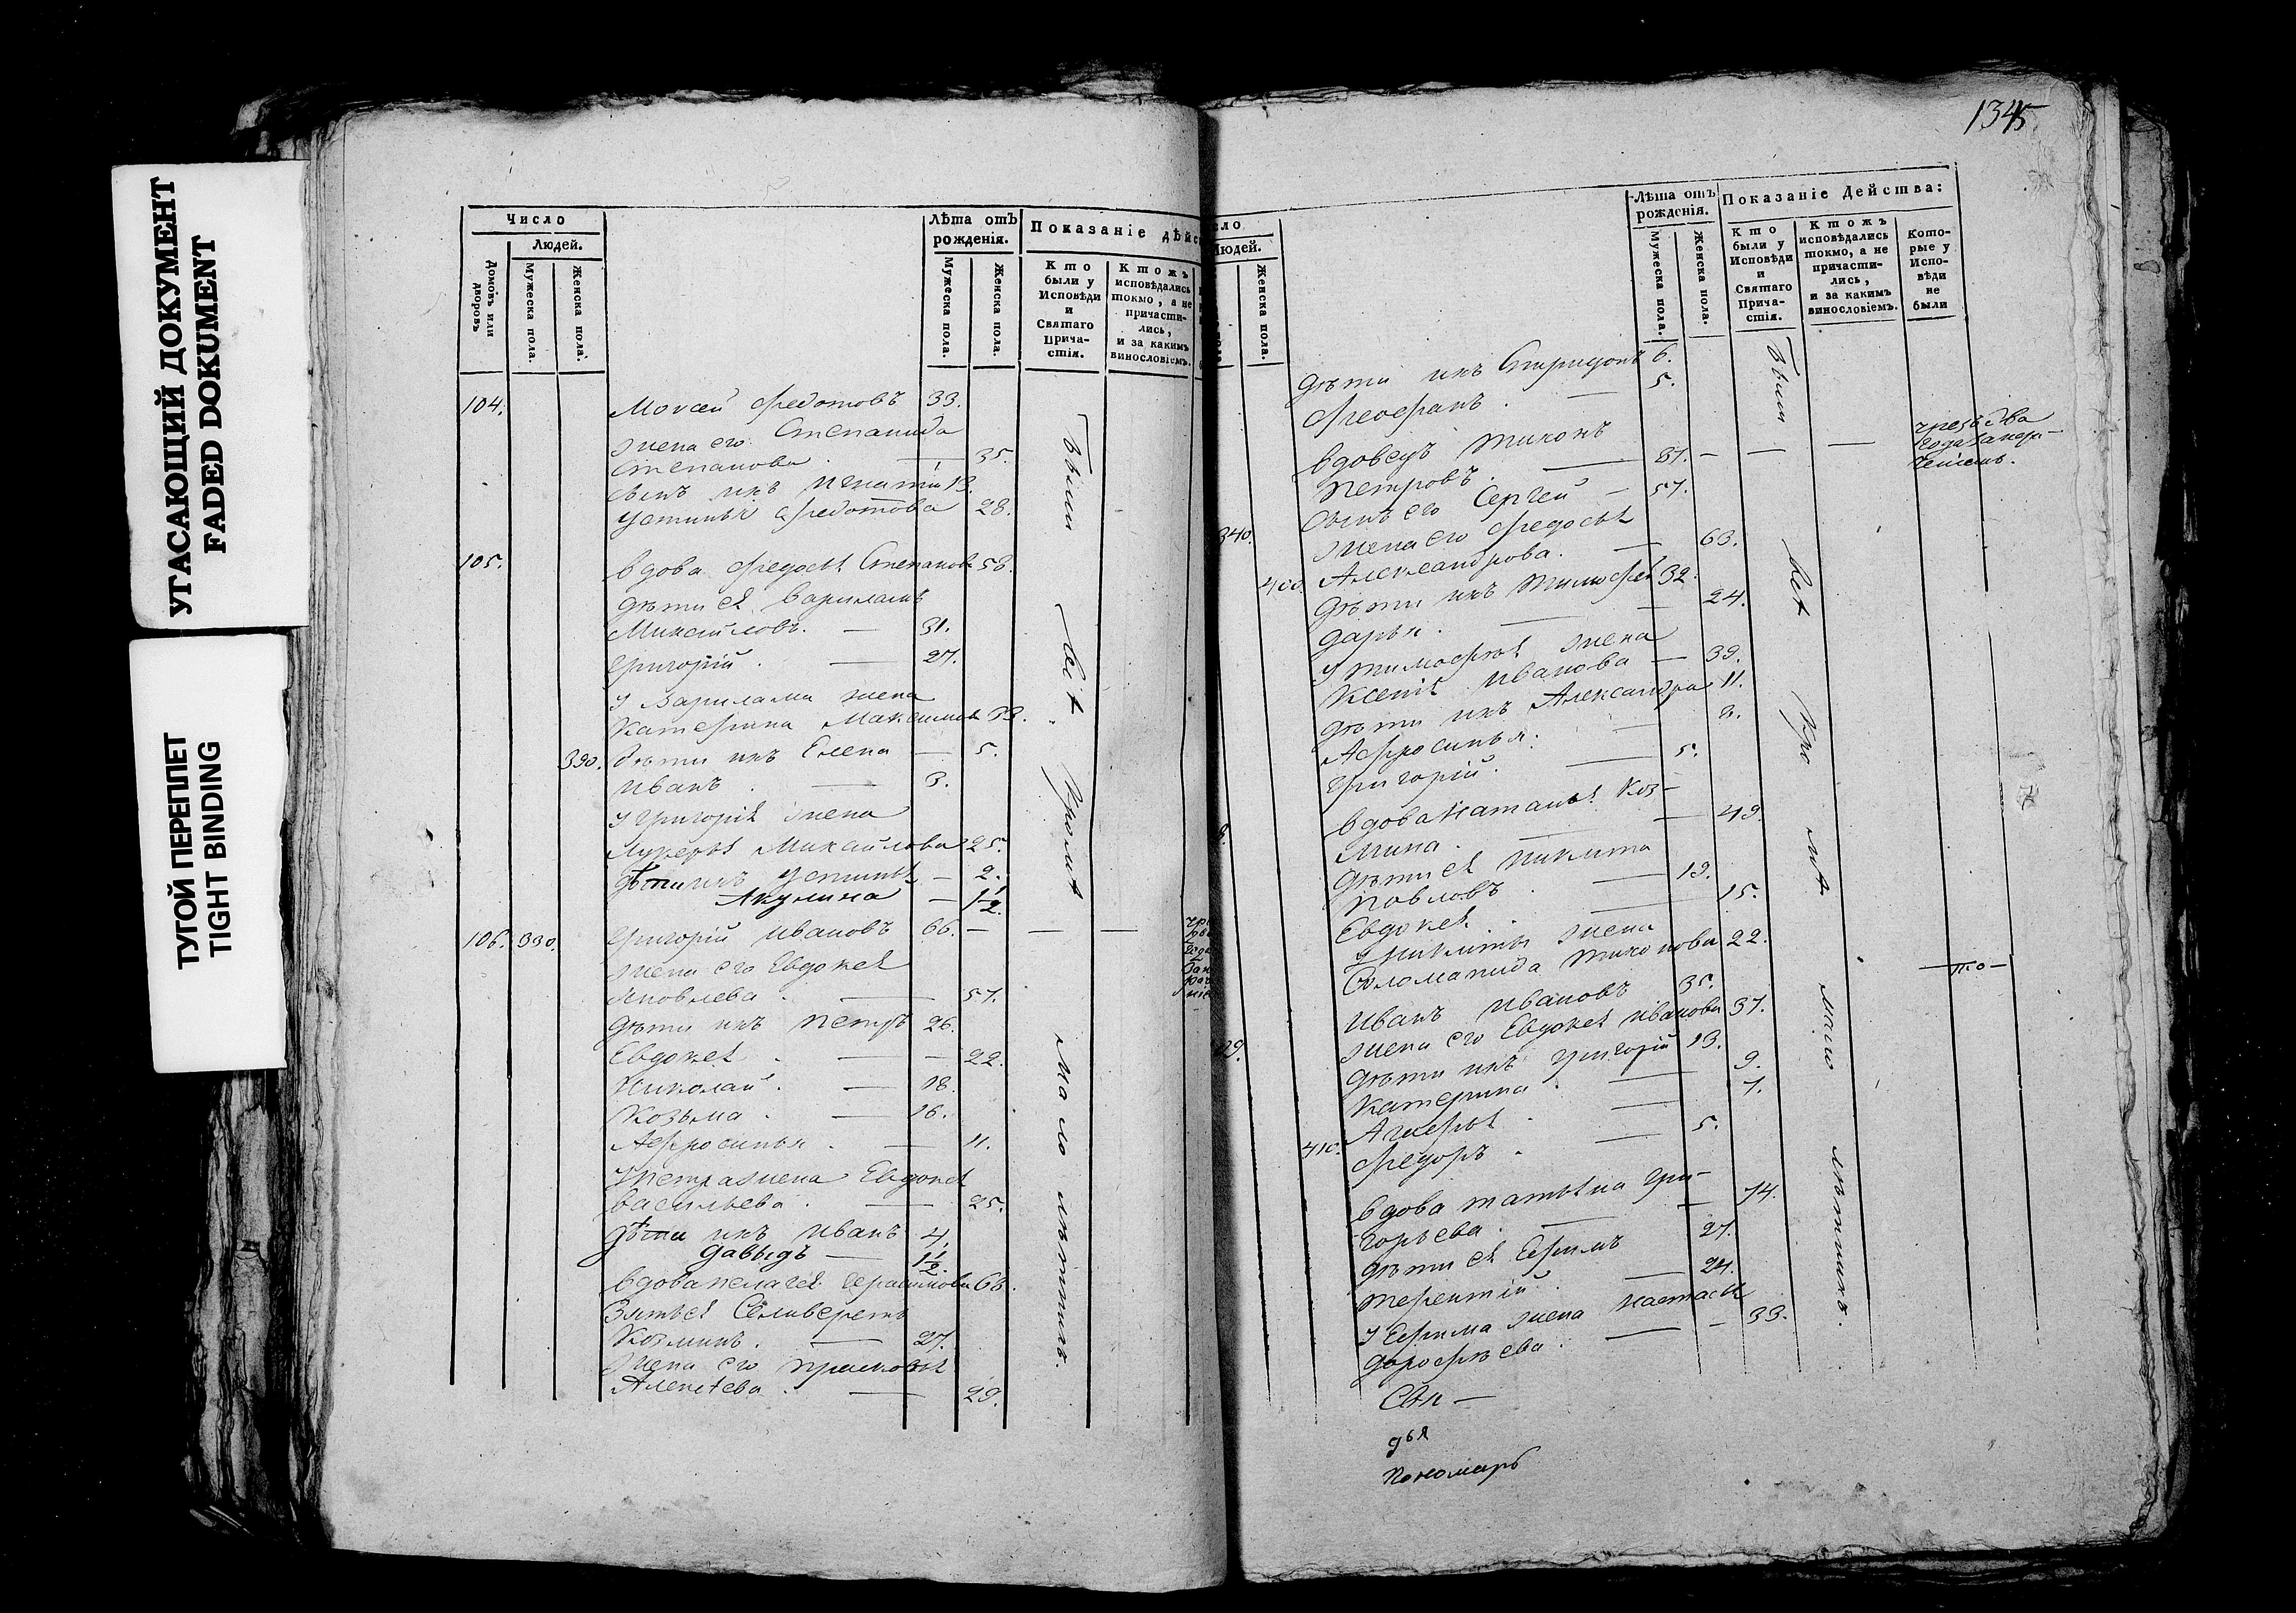 УГАСАЮЩИЙ ДОКУМЕНТ
FADED DOKUMENT
ТУГОЙ ПЕРЕПЛЕТ
TIGHT BINDING
Число
Людей.
Домовъ или дворовъ
Мужеска пола.
Женска пола.
Лѣта отъ рожденія.
Мужеска пола.
Женска пола.
Показаніе дѣйс
Кто были у Исповѣди и Святаго Прича-стія.
Ктожъ исповѣдались токмо, а не причасти-лись, и за какимъ винословіемъ.
104. Моисей Федотовъ 33.
жена его Степанида
Степанова. — 35.
сынъ ихъ Игнатій 13.
Устинья Федотова 28.
105. вдова Федосья Степанова 58.
дѣти ея Варламъ
Михайловъ. — 31.
Григорій. — 27.
у Варлама жена
Катерина Максимова 33.
390. дѣти ихъ Елена — 5.
Иванъ — 3.
у Григорья жена
Лукерья Михайлова 25.
дѣти ихъ Устинья — 2.
Акулина — 1 1/2.
106. 330. Григорій Ивановъ 66. — — —
жена его Евдокея
Яковлева. — 57.
дѣти ихъ Петръ 26.
Евдокея. — — 22.
Николай. — 18.
Козьма. — 16.
Афросинья. — 11.
у Петра жена Евдокея
Васильева. — 25.
дѣти ихъ Иванъ 4.
Давыдъ — 1 1/2.
вдова Пелагея 68.
Зять ея Селиверстъ
Козминъ. — 27.
жена его Прасковья
Алексѣева. — 29.
Были всѣ кромѣ малолѣтнихъ.
1345
сло
Людей.
Женска пола.
Лѣта отъ рожденія.
Мужеска пола.
Женска пола.
Показаніе Действа:
Кто были у Исповѣди и Святаго Прича-стія.
Ктожъ исповѣдались токмо, а не причасти-лись, и за какимъ винословіемъ.
Кото-рые у Испо-вѣди не были
дѣти ихъ Спиридонъ 6.
Феофанъ. — 5.
вдовецъ Тихонъ
Петровъ. — 87. — — —
чрезъ два
года
сынъ его Сергей — 57.
340. жена его Федосья
Александрова. — 63.
400. дѣти ихъ Тимофей 32.
Дарья. — 24.
у Тимофея жена
Ксенія Иванова — 39.
дѣти ихъ Александра 11.
Афросинья. — 8.
Григорій. — 5.
вдова Наталья Коз-
мина. — 49.
дѣти ея Никита
Павловъ — 19.
Евдокея. — 15.
у Никиты жена
Соломанида Тихонова 22.
Иванъ Ивановъ 35. —то—
жена его Евдокея Иванова 37.
дѣти ихъ Григорій 13.
Катерина — 9.
Агафья — 7.
410. Федоръ. — 5.
вдова Татьяна Гри-
горьева. — 74.
дѣти ея Ефимъ 27.
Терентій. — 24.
у Ефима жена Настасья
Дорофѣева. — 33.
Были всѣ кромѣ малолѣтнихъ.
Свя —
дья
Пономарь